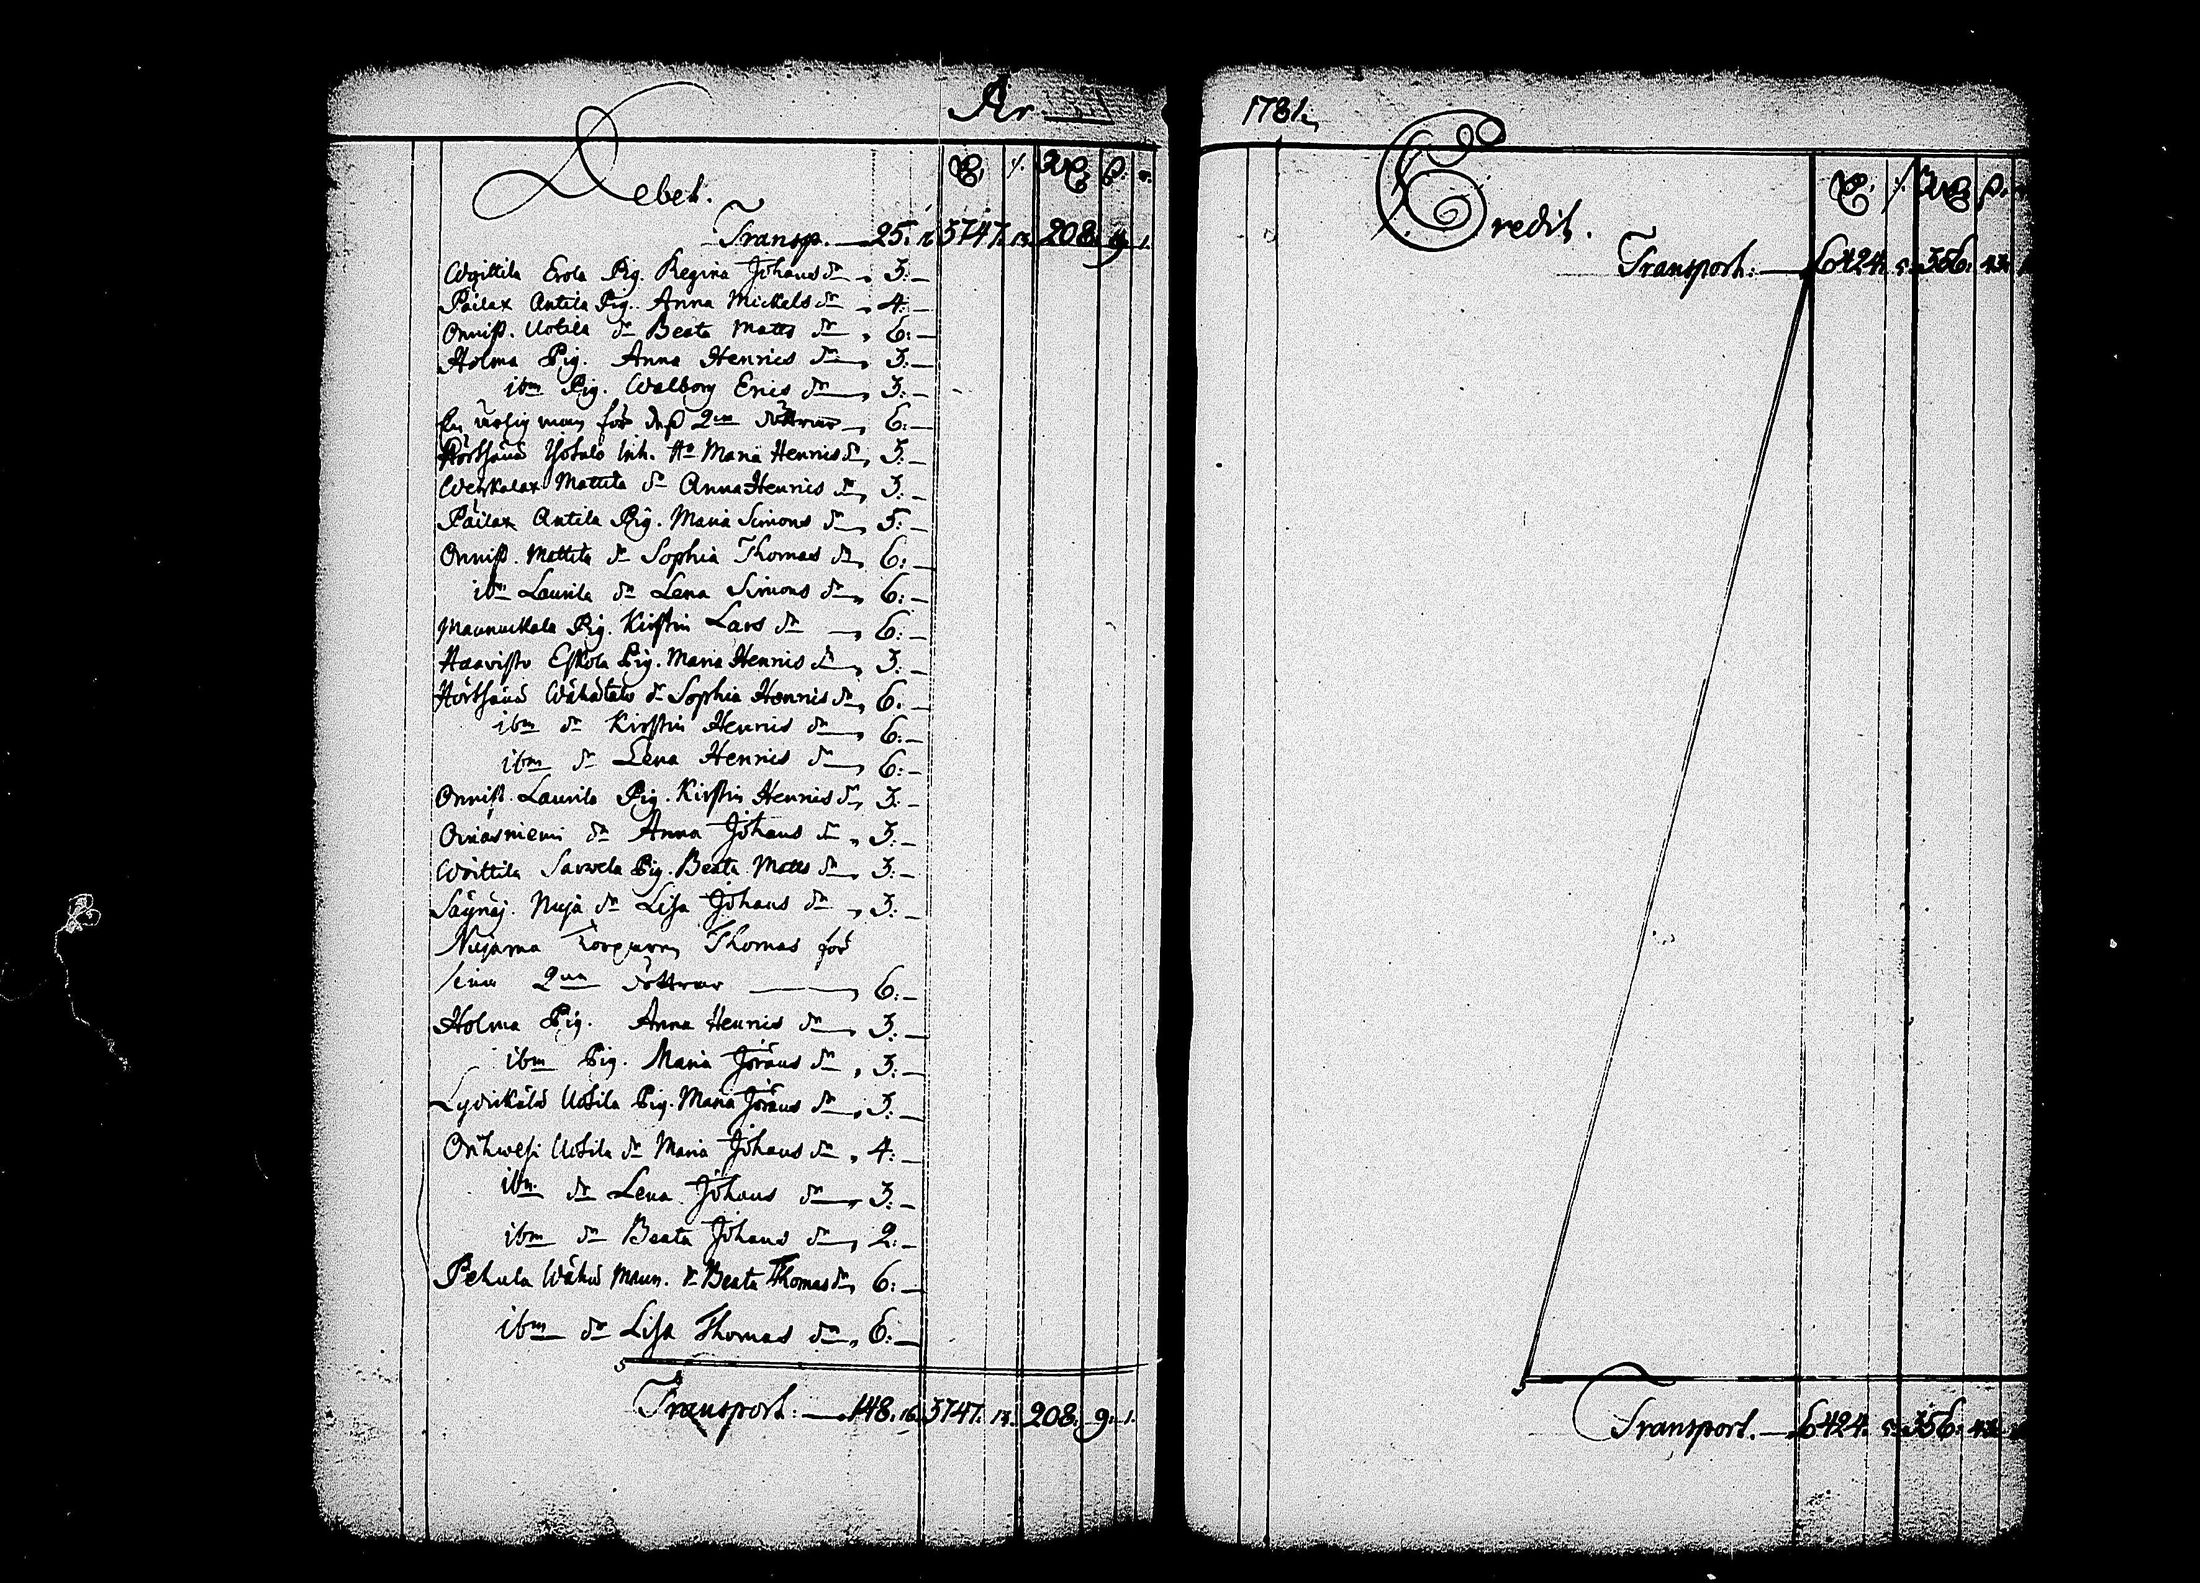 År
Debet.
Transp. — 25. 16 3747. 13. 208. 9. 1.
Woittila Erola Pig. Regina Johans dr „ 3: —
Päilax Antila Pig. Anna Mickels dr „ 4: —
Onniss. Uotila dr Beata Matts dr „ 6: —
Holma Pig. Anna Henrics dr „ 3: —
ibm Pig. Walborg Erics dr „ 3: —
En man för dess 2ne döttrar „ 6: —
Hörthänä Inh. Ho Maria Henrics dr „ 3: —
Wehkalax Mattila dr Anna Henrics dr „ 3: —
Päilax Antila Pig. Maria Simons dr „ 5: —
Onniss. Mattila dr Sophia Thomas dr „ 6: —
ibm Laurila dr Lena Simons dr „ 6: —
Maunuckala Pig. Kirstin Lars dr — „ 6: —
Haavisto Eskola Pig. Maria Henrics dr „ 3: —
Hörthänä Wähätalo dr Sophia Henrics dr „ 6: —
ibm dr Kirstin Henrics dr „ 6: —
ibm dr Lena Henrics dr „ 6: —
Onniss. Laurila Pig. Kirstin Henrics dr „ 3: —
Oriasniemi dr Anna Johans dr „ 3: —
Woittila Sarwela Pig. Beata Matts dr „ 3: —
Säynäj. Nuja dr Lisa Johans dr „ 3: —
Nujarna Torparen Thomas för
sina 2ne döttrar — „ 6: —
Holma Pig. Anna Henrics dr „ 3: —
ibm Pig. Maria Jörans dr „ 3: —
Lyörikälä Uotila Pig. Maria Jörans dr „ 3: —
Orihwesi Uotila dr Maria Johans dr „ 4: —
ibm dr Lena Johans dr „ 3: —
ibm dr Beata Johans dr „ 2: —
Pehula Wähä Maun. dr Beata Thomas dr „ 6: —
ibm dr Lisa Thomas dr „ 6: —
Transport: — 148. 16. 3747. 13. 208. 9. 1.
1781.
Credit.
Transport: — 6424. 5. 356. 43.
Transport. — 6424. 5. 356. 43.